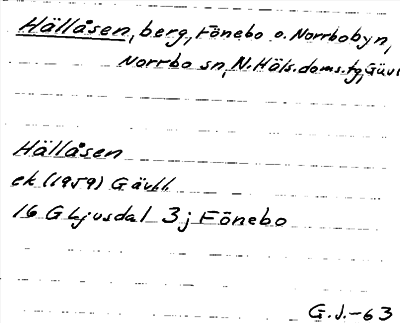 Hällåsen, berg, Fönebo o. Norrbobyn,
Norrbo sn, N. Häls. doms. tg, Gävl
Hällåsen
ek (1959) Gävl l.
16 G Ljusdal 3 j Fönebo
G. J. -63